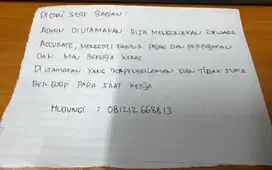 DICARI STAF BAGIAN :
ADMIN DIUTAMAKAN BISA MENGGUNAKAN SOFWARE
ACCURATE, MENGERTI FAKTUR PAJAK DAN PERPAJAKAN
DAN MAU BEKERJA KERAS
DIUTAMAKAN YANG BERPENGALAMAN DAN TIDAK SUKA
BERGOSIP PADA SAAT KERJA
HUBUNGI : 081212668813